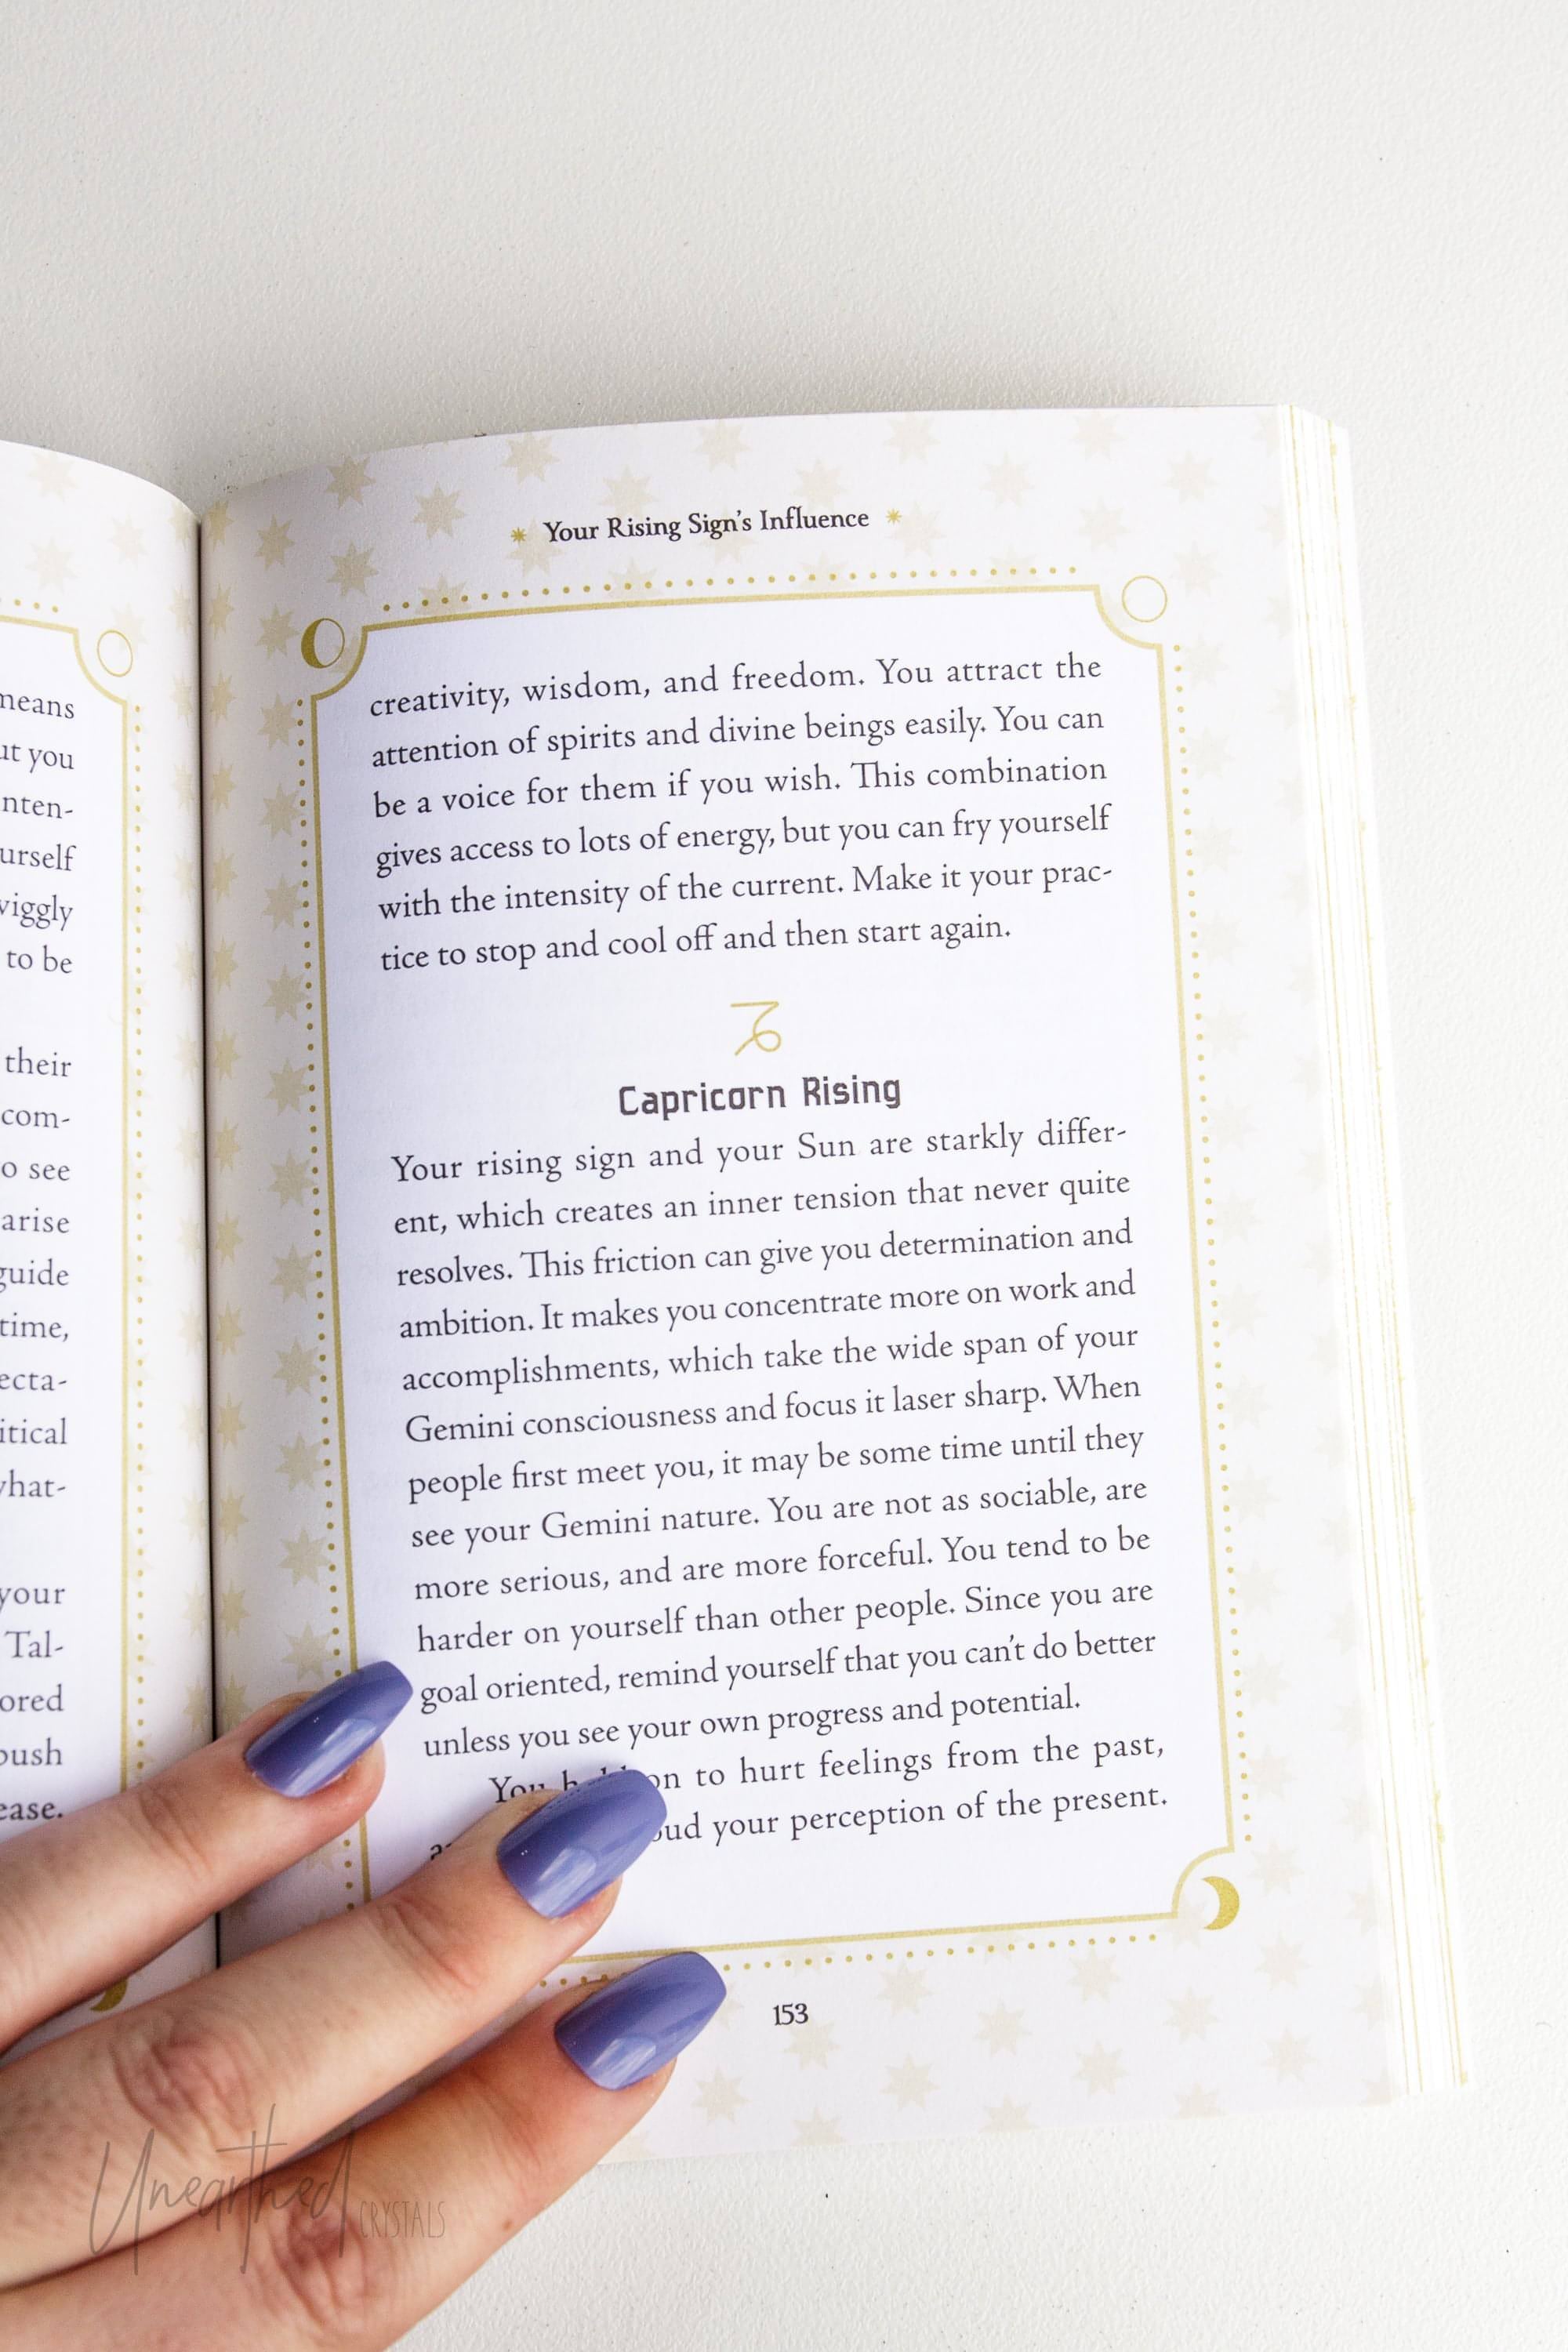 means
ut you
nten-
urself
wiggly
to be
their
com-
o see
arise
guide
time,
ecta-
itical
what-
your
Tal-
ored
push
ease.
Your Rising Sign's Influence
creativity, wisdom, and freedom. You attract the
attention of spirits and divine beings easily. You can
be a voice for them if you wish. This combination
gives access to lots of energy, but you can fry yourself
with the intensity of the current. Make it your prac-
tice to stop and cool off and then start again.
Capricorn Rising
Your rising sign and your Sun are starkly differ-
ent, which creates an inner tension that never quite
resolves. This friction can give you determination and
ambition. It makes you concentrate more on work and
accomplishments, which take the wide span of your
Gemini consciousness and focus it laser sharp. When
people first meet you, it may be some time until they
see your Gemini nature. You are not as sociable, are
more serious, and are more forceful. You tend to be
harder on yourself than other people. Since you are
goal oriented, remind yourself that you can't do better
unless you see your own progress and potential.
You on to hurt feelings from the past,
oud your perception of the present.
153
Unearthed CRYSTALS